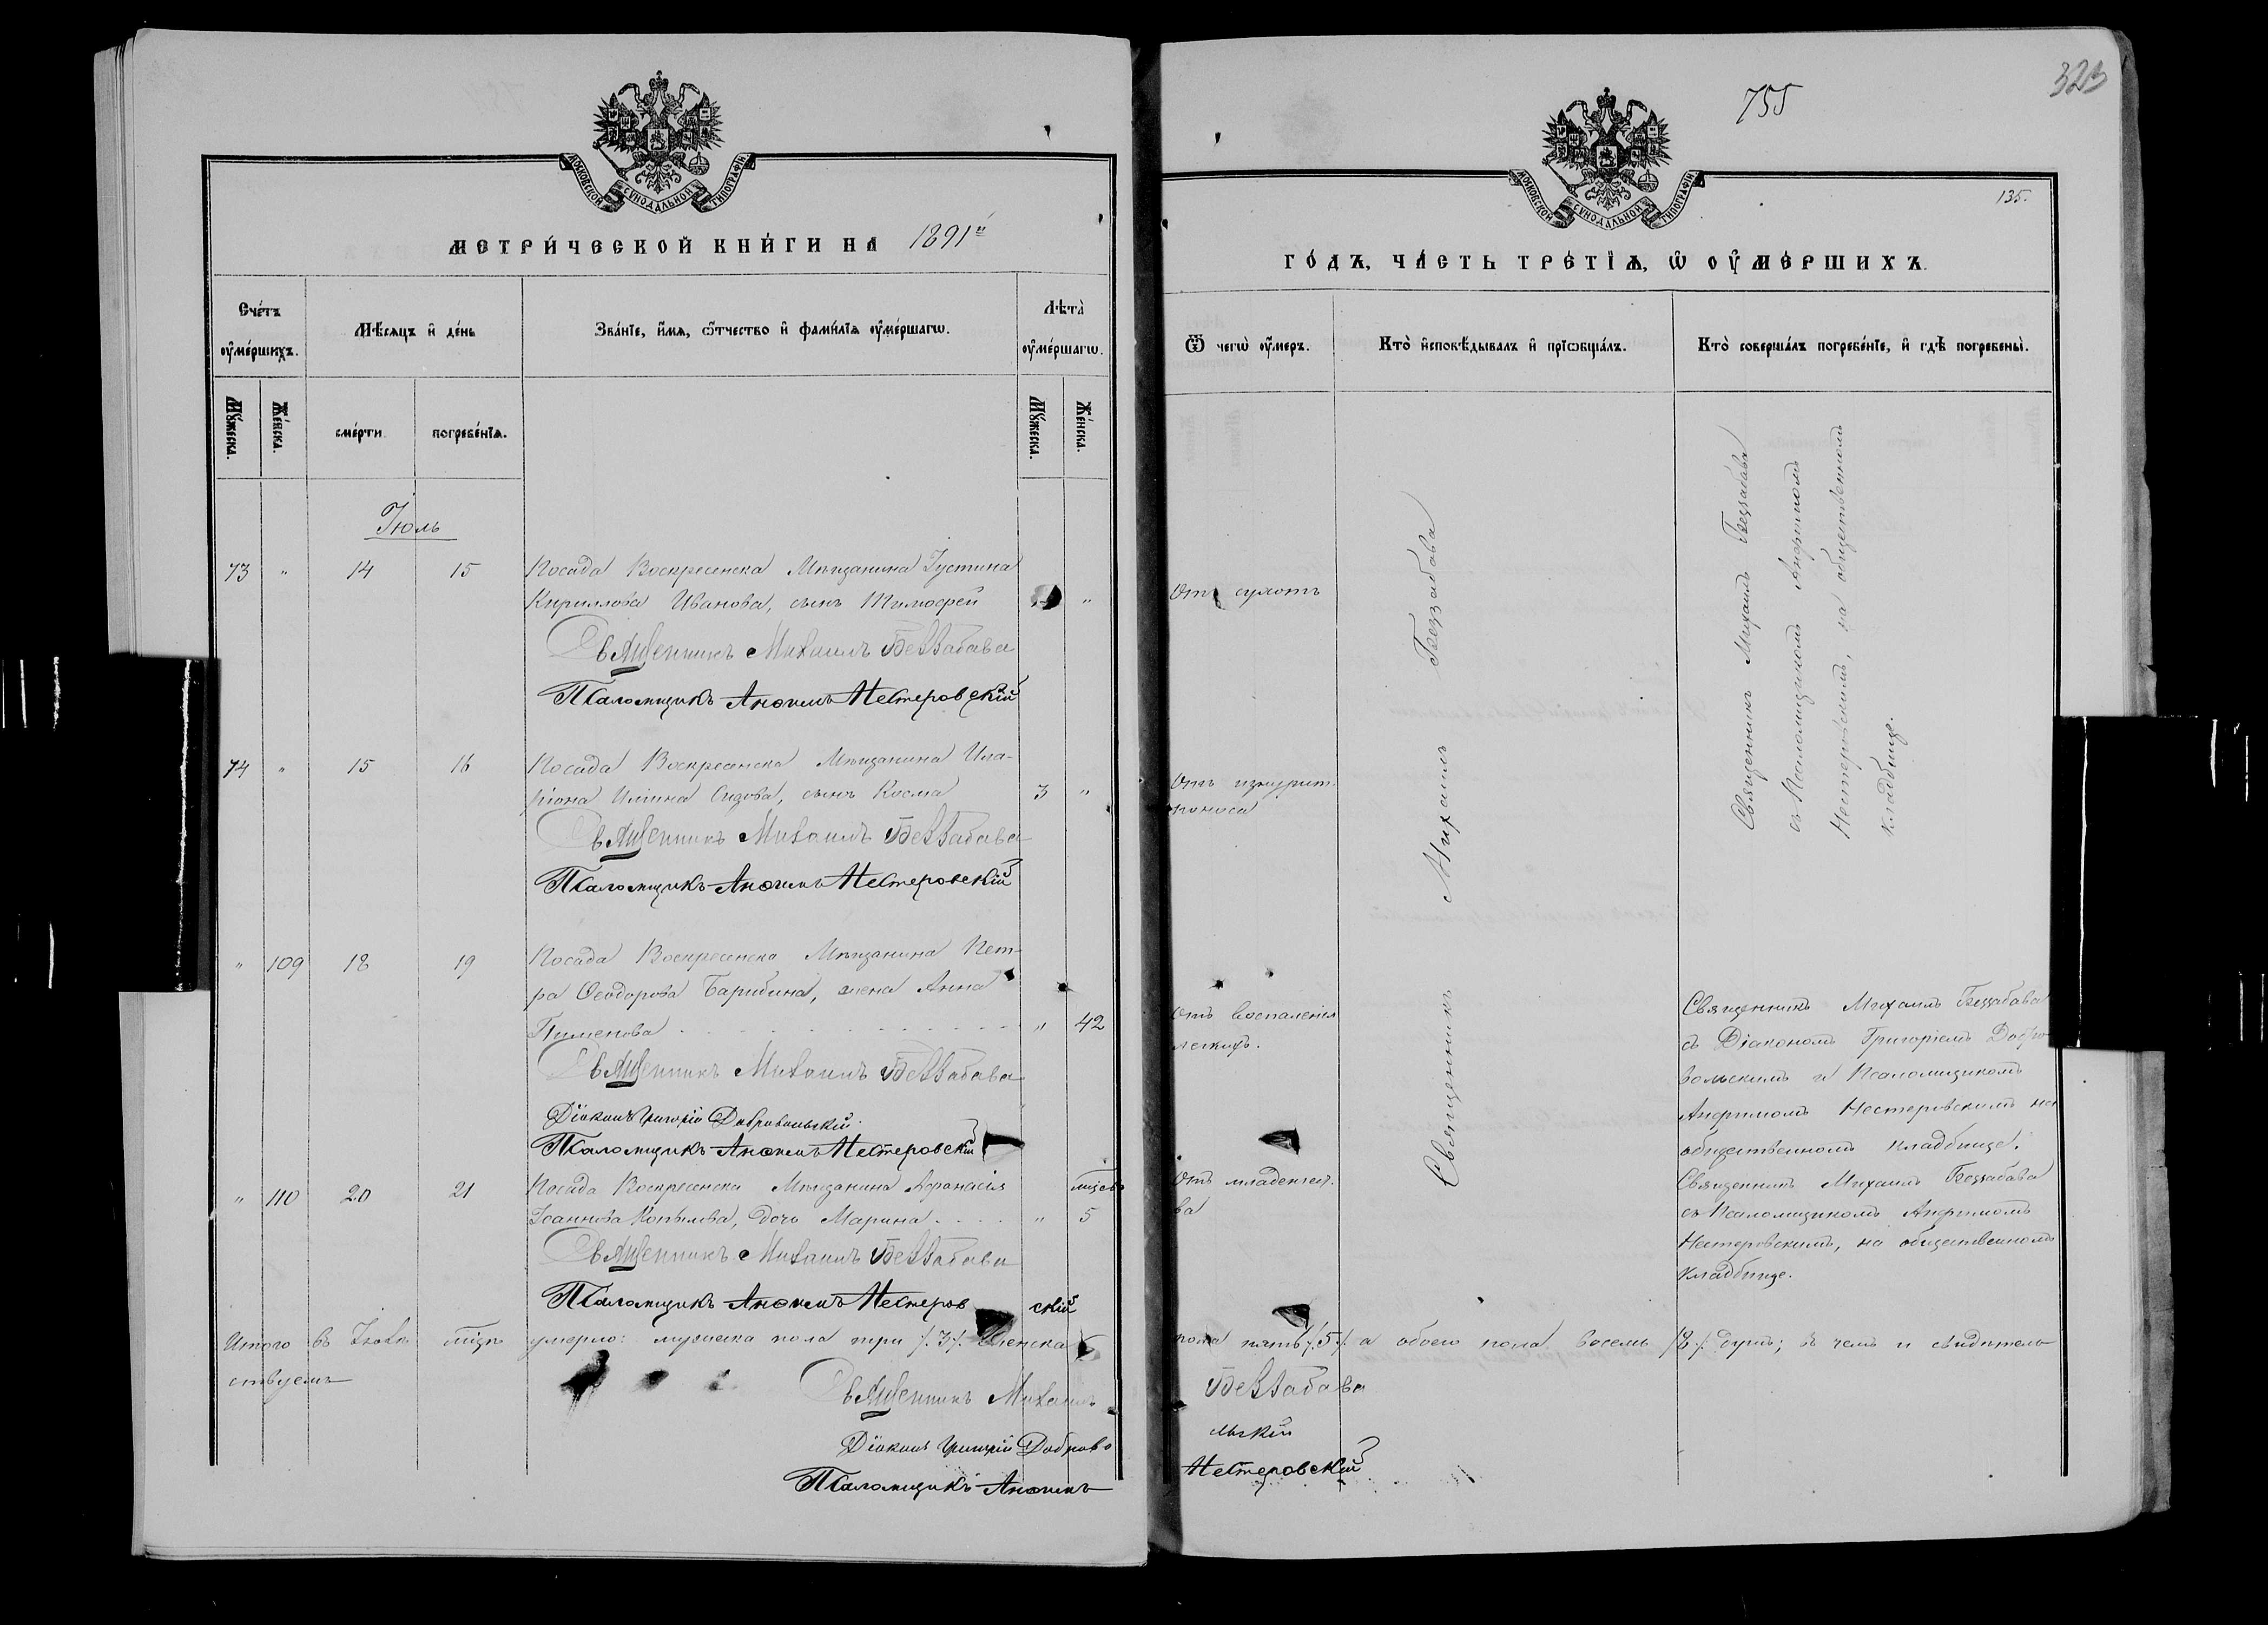 755
323
135.
МОСКОВСКОЙ СѴНОДАЛЬНОЙ ТИПОГРАФІИ
МЕТРИЧЕСКОЙ КНИГИ НА 1891й
Счетъ оумершихъ.
Мѣсяцъ и день
Званіе, имя, отчество и фамилія оумершагѡ.
Лѣта оумершагѡ.
Мужеска.
Женска.
смерти
погребенія.
Мужеска.
Женска.
Іюль
73 " 14 15 Посада Воскресенска Мѣщанина Іустина
Кириллова Иванова, сынъ Тимофей "
Священникъ Михаилъ Беззабава
Псаломщикъ Анѳимъ Нестеровскій
74 " 15 16 Посада Воскресенска Мѣщанина Ила-
ріона Иліина Сизова, сынъ Косма 3 "
Священникъ Михаилъ Беззабава
Псаломщикъ Анѳимъ Нестеровскій
" 109 18 19 Посада Воскресенска Мѣщанина Пет-
ра Ѳеодорова Барибина, жена Анна
Пименова " 42
Священникъ Михаилъ Беззабава
Діаконъ Григорій Добровольскій
Псаломщикъ Анѳимъ Нестеровскій
" 110 20 21 Посада Воскресенска Мѣщанина Афанасія
Іоаннова Копылова, дочь Марина " 5
Священникъ Михаилъ Беззабава
Псаломщикъ Анѳимъ Нестеровскій
Итого въ Іюлѣ мцѣ умерло: мужеска пола три /.3/. Женска
ствуемъ
Священникъ Михаилъ
Діаконъ Григорій Доброво
Псаломщикъ Анѳимъ
МОСКОВСКОЙ СѴНОДАЛЬНОЙ ТИПОГРАФІИ
ГОДЪ, ЧАСТЬ ТРЕТІЯ, Ѡ ОУМЕРШИХЪ.
Ѿ чегѡ оумеръ.
Кто исповѣдывалъ и пріѡбщалъ.
Кто совершалъ погребеніе, и гдѣ погребены.
Отъ сухотъ
Отъ изнурит.
поноса
Отъ воспаленія
легкихъ.
Отъ младенчест.
ва
Священникъ Михаилъ Беззабава
Священникъ Михаилъ Беззабава
съ Псаломщикомъ Анфимомъ
Нестеровскимъ, на общественномъ
кладбище.
Священникъ Михаилъ Беззабава
съ Діакономъ Григоріемъ Добро
вольскимъ и Псаломщикомъ
Анфимомъ Нестеровскимъ на
общественномъ кладбище.
Священникъ Михаилъ Беззабава
съ Псаломщикомъ Анфимомъ
Нестеровскимъ, на общественномъ
кладбище.
пола пять /.5/. а обоего пола восемь /8/. душъ; въ чемъ и свидѣтель
Беззабава
льскій
Нестеровскій